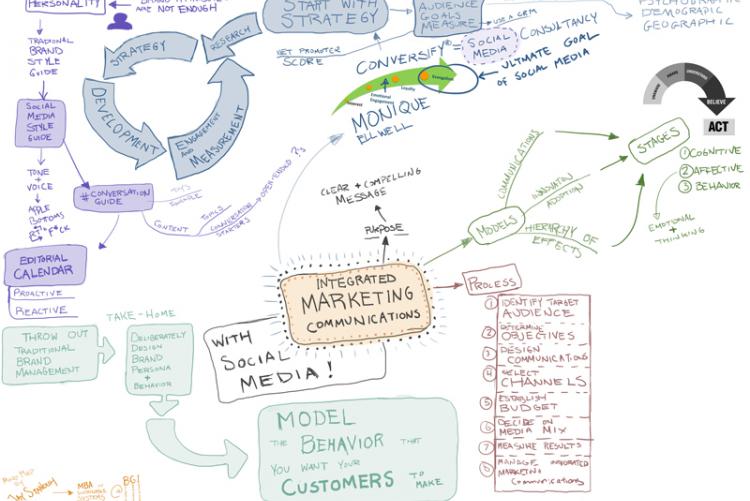 PERSONALITY
ARE NOT ENOUGH
TRADIONAL
BRAND
STYLE
GUIDE
SOCIAL
MEDIA
STYLE
GUIDE
TONE
+
VOICE
APPLE
BOTTOMS
EDITORIAL
CALENDAR
PROACTIVE
REACTIVE
#CONVERSATION
GUIDE
CONTENT
TOPICS
CONVERSATION
STARTERS
OPEN-ENDED ?'s
STRATEGY
RESEARCH
DEVELOPMENT
ENGAGEMENT
AND
MEASUREMENT
START WITH
STRATEGY
NET PROMOTER
SCORE
AUDIENCE
GOALS
MEASURE
USE A CRM
PSYCHOGRAPHIC
DEMOGRAPHIC
GEOGRAPHIC
CONVERSIFY® = SOCIAL
MEDIA
CONSULTANCY
ULTIMATE GOAL
OF SOCIAL MEDIA
Interest
Emotional
Engagement
Loyalty
Evangelism
MONIQUE
ELLWELL
CLEAR + COMPELLING
MESSAGE
PURPOSE
MODELS
COMMUNICATIONS
INNOVATION
ADOPTION
HIERARCHY OF
EFFECTS
STAGES
① COGNITIVE
② AFFECTIVE
③ BEHAVIOR
EMOTIONAL
+
THINKING
BELIEVE
ACT
INTEGRATED
MARKETING
COMMUNICATIONS
WITH
SOCIAL
MEDIA!
PROCESS
① IDENTIFY TARGET
AUDIENCE
② DETERMINE
OBJECTIVES
③ DESIGN
COMMUNICATIONS
④ SELECT
CHANNELS
⑤ ESTABLISH
BUDGET
⑥ DECIDE ON
MEDIA MIX
⑦ MEASURE RESULTS
⑧ MANAGE INTEGRATED
MARKETING
COMMUNICATIONS
TAKE-HOME
THROW OUT
TRADITIONAL
BRAND
MANAGEMENT
DELIBERATELY
DESIGN
BRAND
PERSONA
+
BEHAVIOR
MODEL
THE BEHAVIOR THAT
YOU WANT YOUR
CUSTOMERS TO
MAKE
MBA
SYSTEMS
BGI